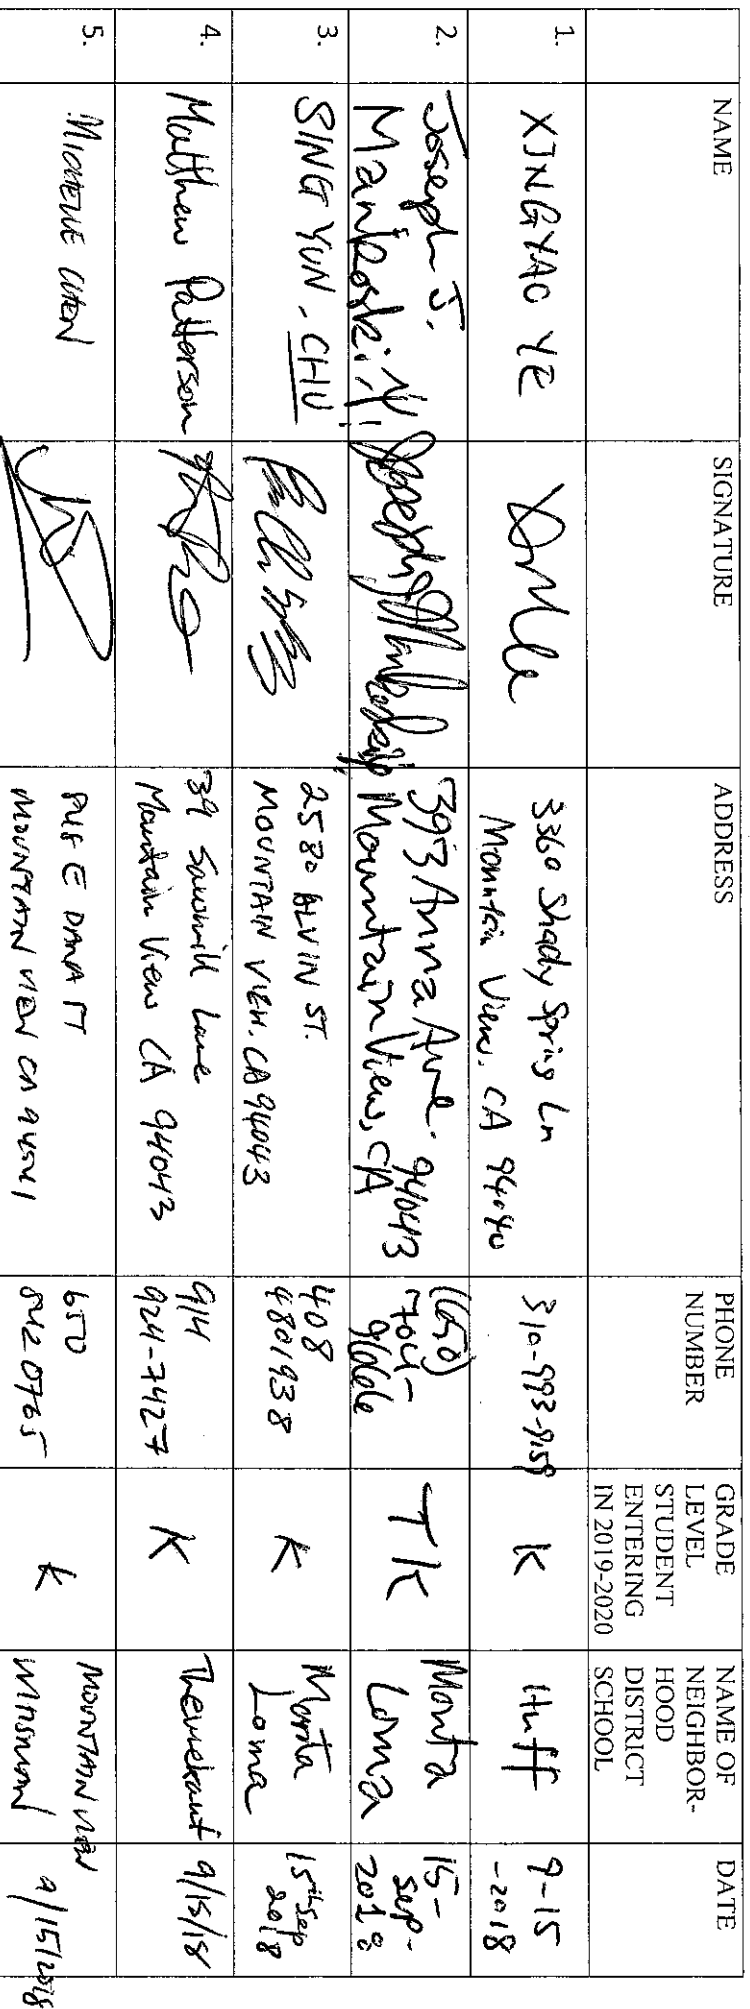 NAME
SIGNATURE
ADDRESS
PHONE
NUMBER
GRADE
LEVEL
STUDENT
ENTERING
IN 2019-2020
NAME OF
NEIGHBOR-
HOOD
DISTRICT
SCHOOL
DATE
1.
XINGYAO YE
3360 Shady Spring Ln
Mountain View, CA 94040
310-993-9159
K
Huff
9-15
-2018
2.
Joseph J.
Mankoski
393 Anna Ave. 94043
Mountain View, CA
(650)
704-
K
Monta
Loma
15-
Sep-
2018
3.
SING YUN, CHU
2580 ALVIN ST.
MOUNTAIN VIEW. CA 94043
408
4801938
K
Monta
Loma
15th Sep
2018
4.
Matthew Patterson
39 Sawmill Lane
Mountain View CA 94043
914
924-7427
K
Theuerkauf
9/15/18
5.
MICHELLE CHEN
E DANA ST
MOUNTAIN VIEW CA 94041
650
842 0765
K
MOUNTAIN VIEW
9/15/2018